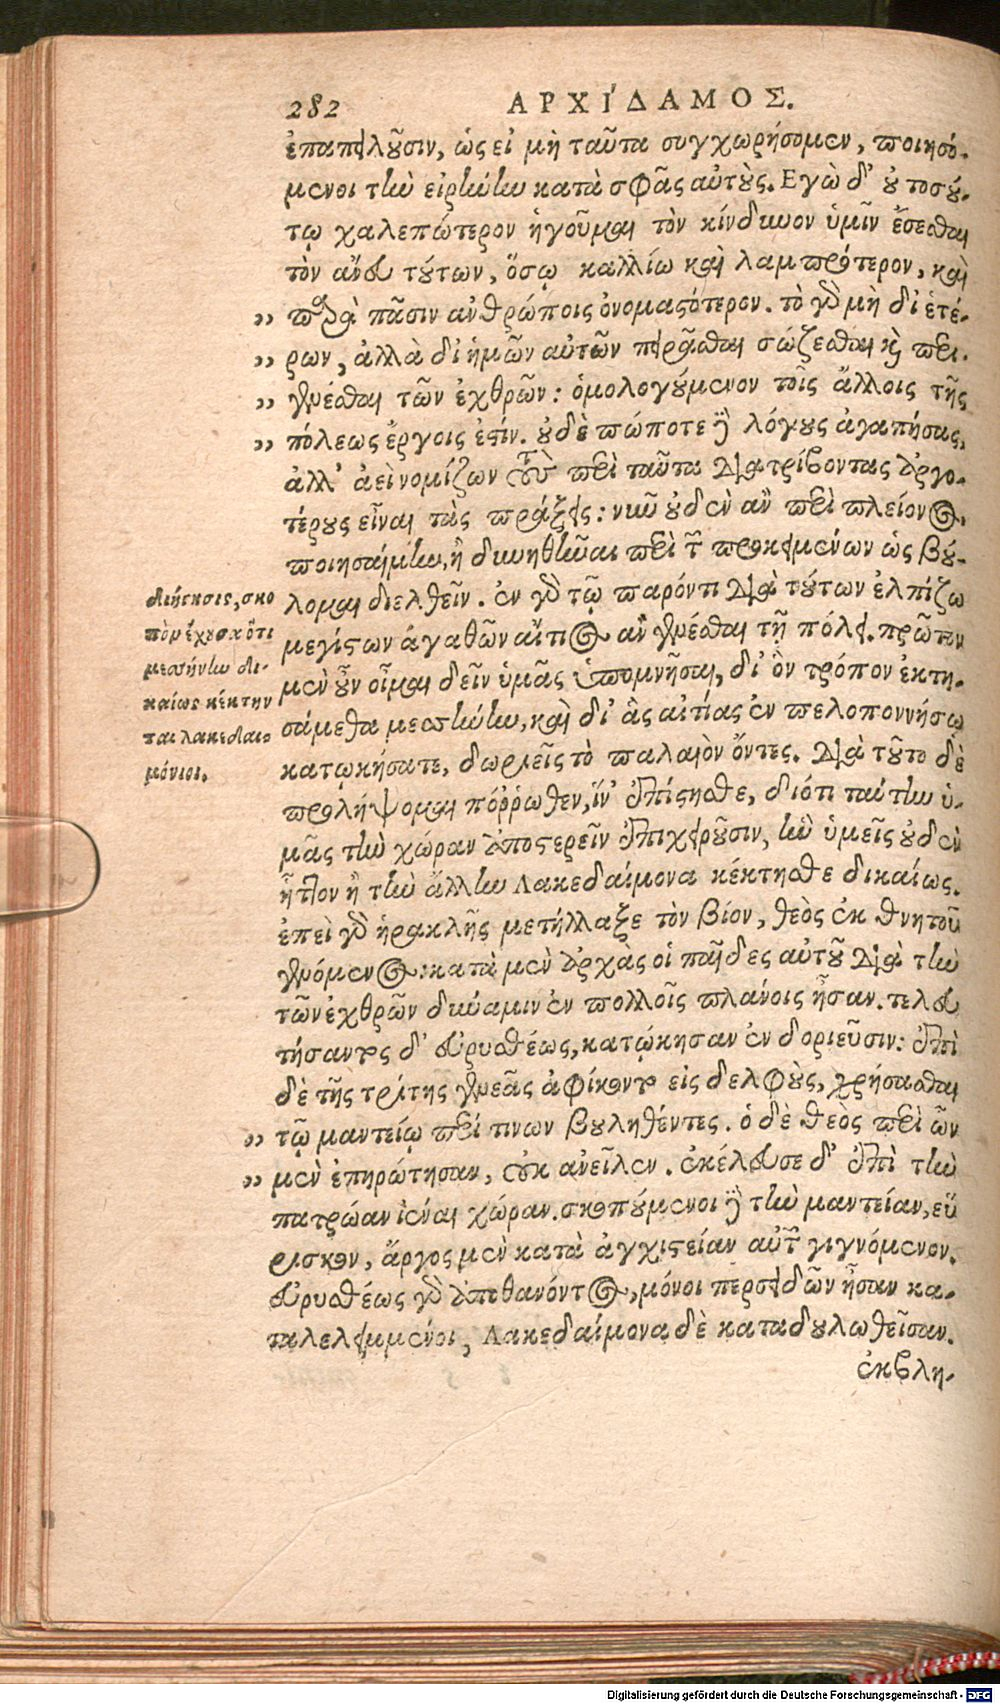 282 ΑΡΧΊΔΑΜΟΣ.
ἐπαπειλοῦσιν, ὡς εἰ μὴ ταῦτα συγχωρήσομεν, ποιησό-
μενοι τὴν εἰρήνην κατὰ σφᾶς αὐτούς. Εγὼ δ' οὐ τοσού-
τῳ χαλεπώτερον ἡγοῦμαι τὸν κίνδυνον ὑμῖν ἔσεσθαι
τὸν ἄνευ τούτων, ὅσῳ καλλίω καὶ λαμπρότερον, καὶ
„ παρὰ πᾶσιν ἀνθρώποις ὀνομαστότερον. τὸ γὰρ μὴ δι' ἑτέ-
„ ρων, ἀλλὰ δι' ἡμῶν αὐτῶν πειρᾶσθαι σώζεσθαι καὶ περι-
„ γενέσθαι τῶν ἐχθρῶν: ὁμολογούμενον τοῖς ἄλλοις τῆς
„ πόλεως ἔργοις ἐστίν. οὐδὲ πώποτε δὲ λόγους ἀγαπήσας,
ἀλλ' ἀεὶ νομίζων τοὺς περὶ ταῦτα διατρίβοντας ἀργο-
τέρους εἶναι τὰς πράξεις: νῦν οὐδὲν ἂν περὶ πλείονος
ποιησαίμην, ἢ δυνηθῆναι περὶ τῶν προκειμένων ὡς βού-
λομαι διελθεῖν. ἐν γὰρ τῷ παρόντι διὰ τούτων ἐλπίζω
μεγίστων ἀγαθῶν αἴτιος ἂν γενέσθαι τῇ πόλει. πρῶτον
μὲν οὖν οἶμαι δεῖν ὑμᾶς ὑπομνῆσαι, δι' ὃν τρόπον ἐκτη-
σάμεθα μεσσήνην, καὶ δι' ἃς αἰτίας ἐν πελοποννήσῳ
κατῳκήσατε, δωριεῖς τὸ παλαιὸν ὄντες. διὰ τοῦτο δὲ
προλήψομαι πόῤῥωθεν, ἵν' ἐπίστησθε, διότι ταύτην ὑ-
μᾶς τὴν χώραν ἀποστερεῖν ἐπιχειροῦσιν, ἣν ὑμεῖς οὐδὲν
ἧττον ἢ τὴν ἄλλην Λακεδαίμονα κέκτησθε δικαίως.
ἐπεὶ γὰρ ἡρακλῆς μετήλλαξε τὸν βίον, θεὸς ἐκ θνητοῦ
γενόμενος: κατὰ μὲν ἀρχὰς οἱ παῖδες αὐτοῦ διὰ τὴν
τῶν ἐχθρῶν δύναμιν ἐν πολλοῖς πλάνοις ἦσαν. τελευ
τήσαντος δ' εὐρυσθέως, κατῴκησαν ἐν δοριεῦσιν: ἐπὶ
δὲ τῆς τρίτης γενεᾶς ἀφίκοντο εἰς δελφούς, χρήσασθαι
„ τῷ μαντείῳ περί τινων βουληθέντες. ὁ δὲ θεὸς περὶ ὧν
„ μὲν ἐπηρώτησαν, οὐκ ἀνεῖλεν. ἐκέλευσε δ' ἐπὶ τὴν
πατρῴαν ἰέναι χώραν. σκοπούμενοι δὲ τὴν μαντείαν, εὕ
ρισκον, ἄργος μὲν κατὰ ἀγχιστείαν αὐτῶν γιγνόμενον.
εὐρυσθέως γὰρ ἀποθανόντος, μόνοι περσειδῶν ἦσαν κα-
ταλελειμμένοι, Λακεδαίμονα δὲ καταδουλωθεῖσαν.
ἐκβλη-
διήγησις, σκο
πὸν ἔχουσα ὅτι
μεσήνην δι-
καίως κέκτην
ται λακεδαι
μόνιοι.
Digitalisierung gefördert durch die Deutsche Forschungsgemeinschaft - DFG